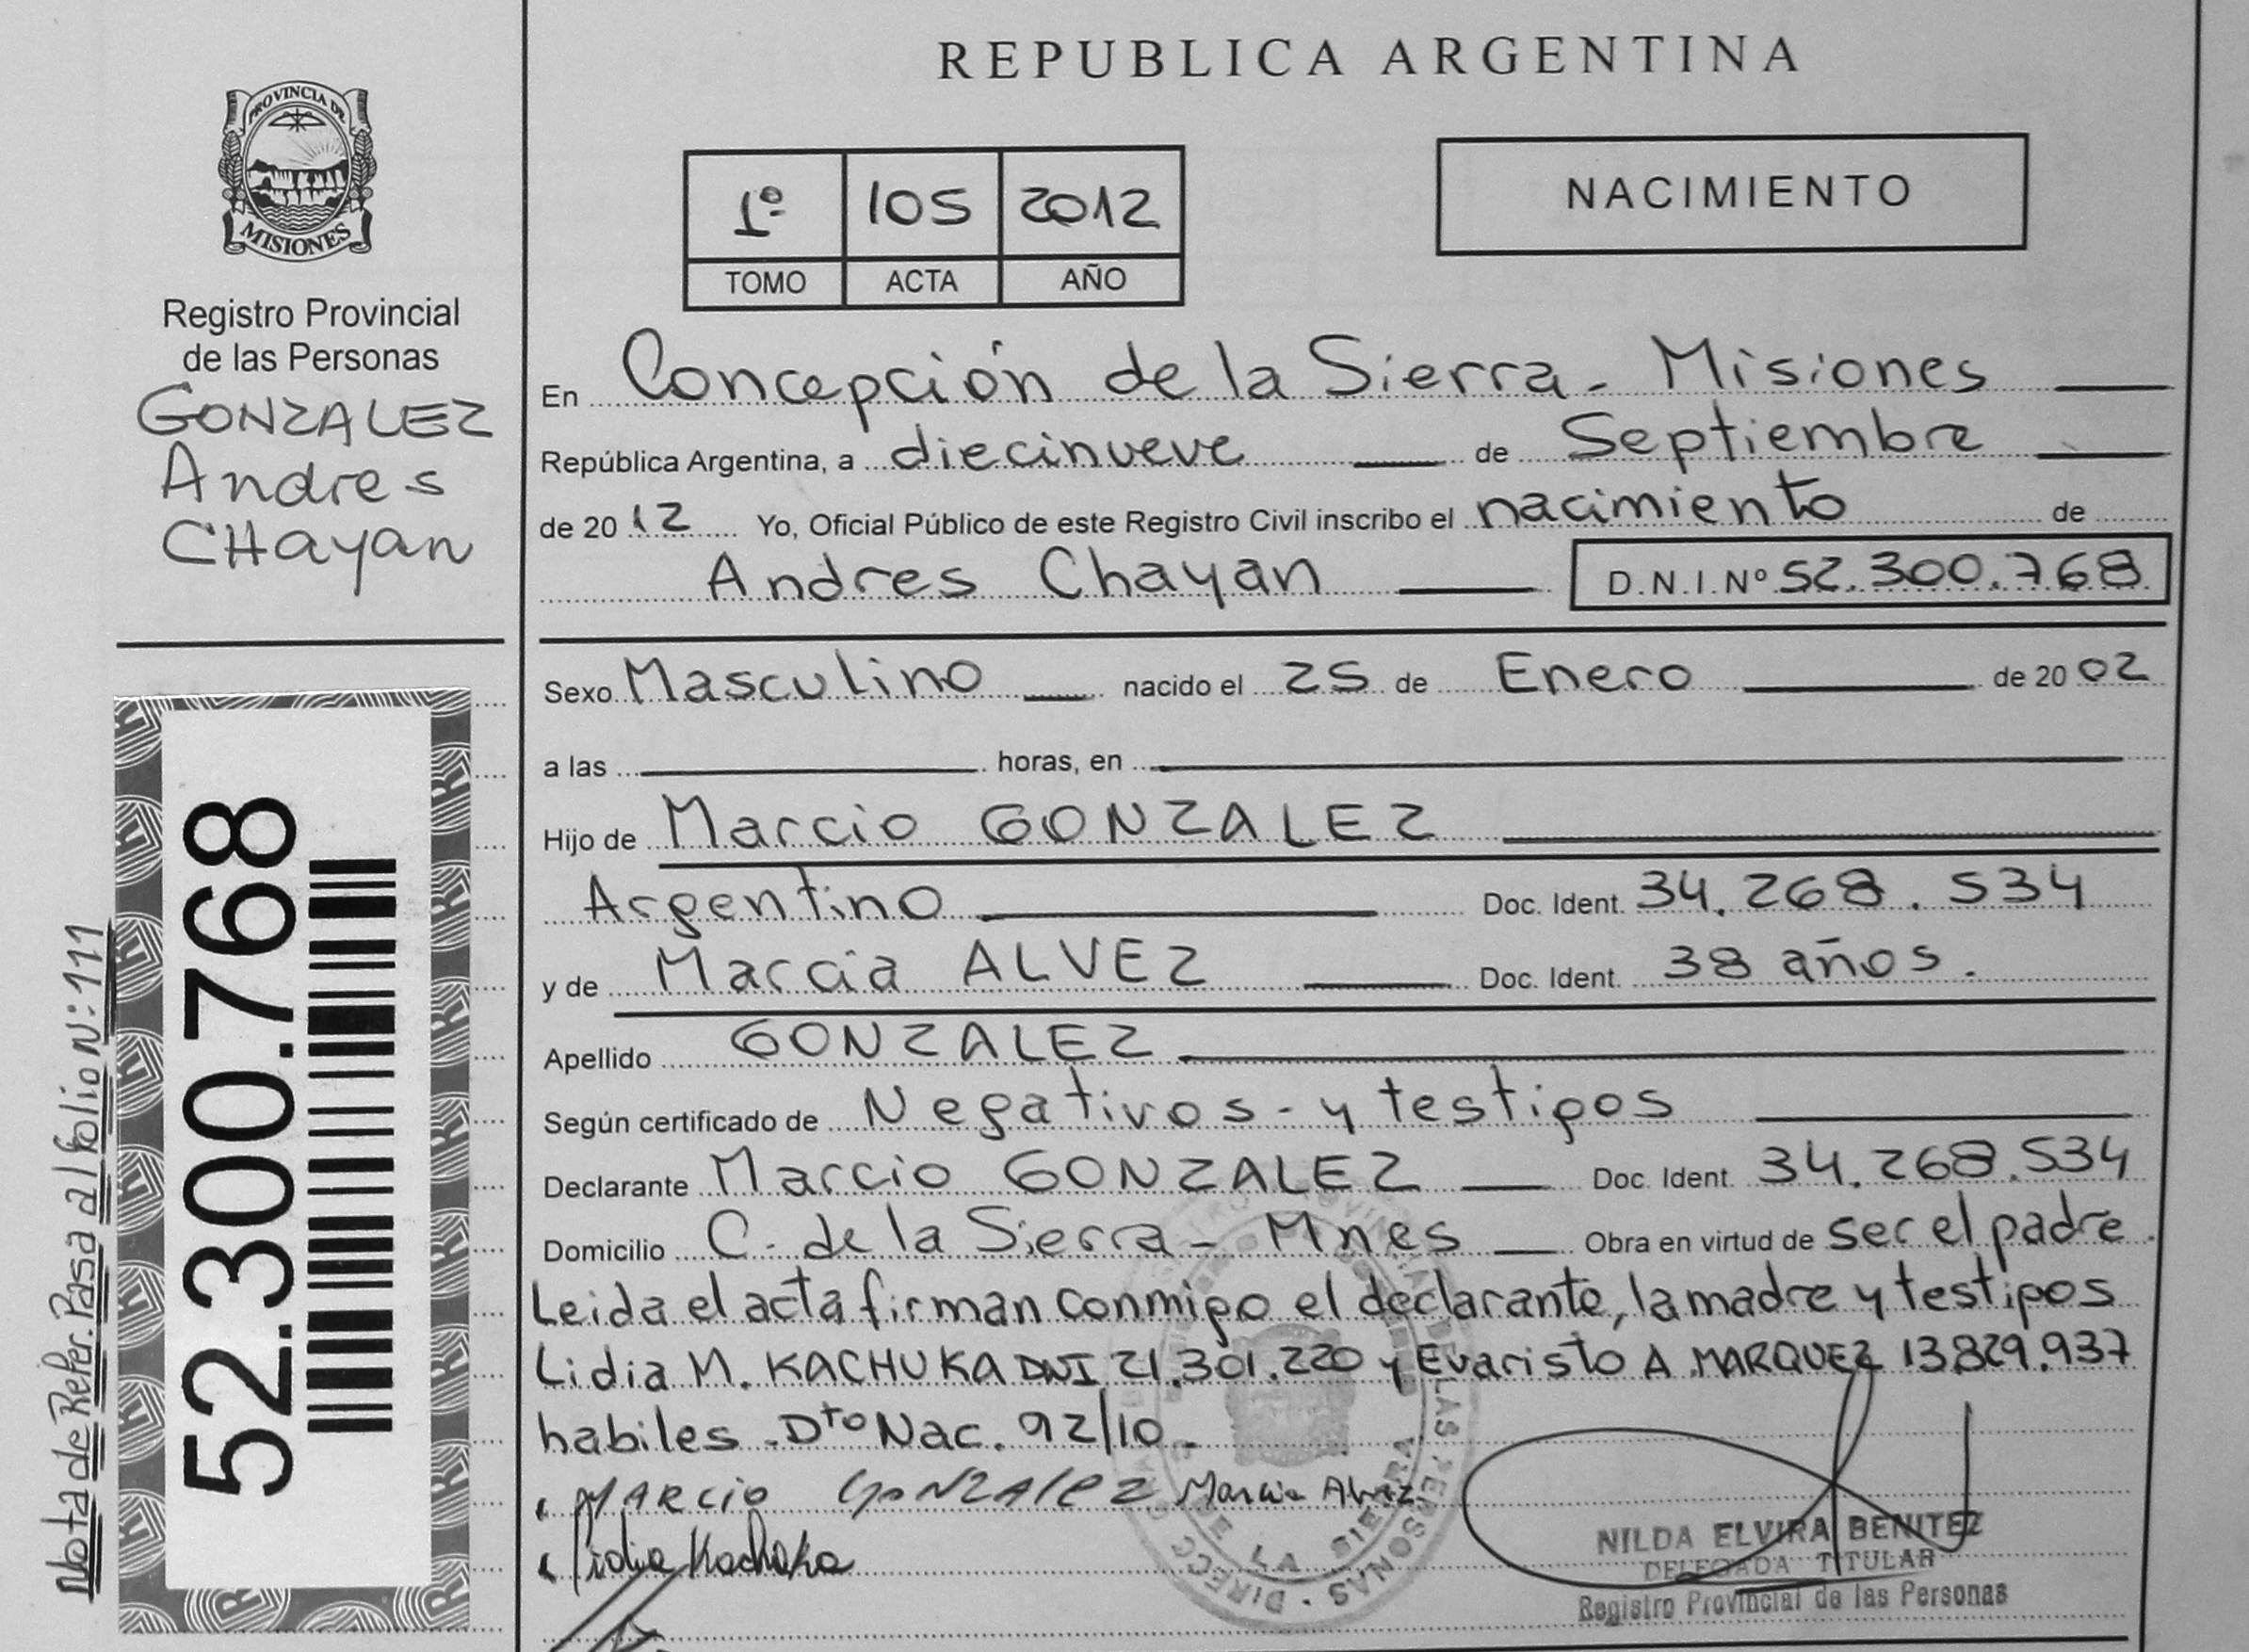 REPUBLICA ARGENTINA
PROVINCIA DE
MISIONES
Registro Provincial
de las Personas
GONZALEZ
Andres
CHayan
1º 105 2012
TOMO ACTA AÑO
NACIMIENTO
En Concepción de la Sierra - Misiones
República Argentina, a diecinueve de Septiembre
de 20 12 Yo, Oficial Público de este Registro Civil inscribo el nacimiento de
Andres Chayan D.N.I.Nº 52.300.768
Sexo Masculino nacido el 25 de Enero de 20 02
a las horas, en
Hijo de Marcio GONZALEZ
Argentino Doc. Ident. 34.268.534
y de Marcia ALVEZ Doc. Ident. 38 años.
Apellido GONZALEZ
Según certificado de Negativos - y testigos
Declarante Marcio GONZALEZ Doc. Ident. 34.268.534
Domicilio C. de la Sierra - Mnes Obra en virtud de ser el padre.
Leida el acta firman conmigo el declarante, la madre y testigos
Lidia M. KACHUKA DNI 21.301.220 y Evaristo A MARQUEZ 13.829.937
habiles. Dto Nac. 92/10.
MARCIO GONZALEZ Marcia Alvez
Lidia Kachuka
NILDA ELVIRA BENITEZ
DELEGADA TITULAR
Registro Provincial de las Personas
52.300.768
Nota de Refer. Pasa al folio Nº: 111